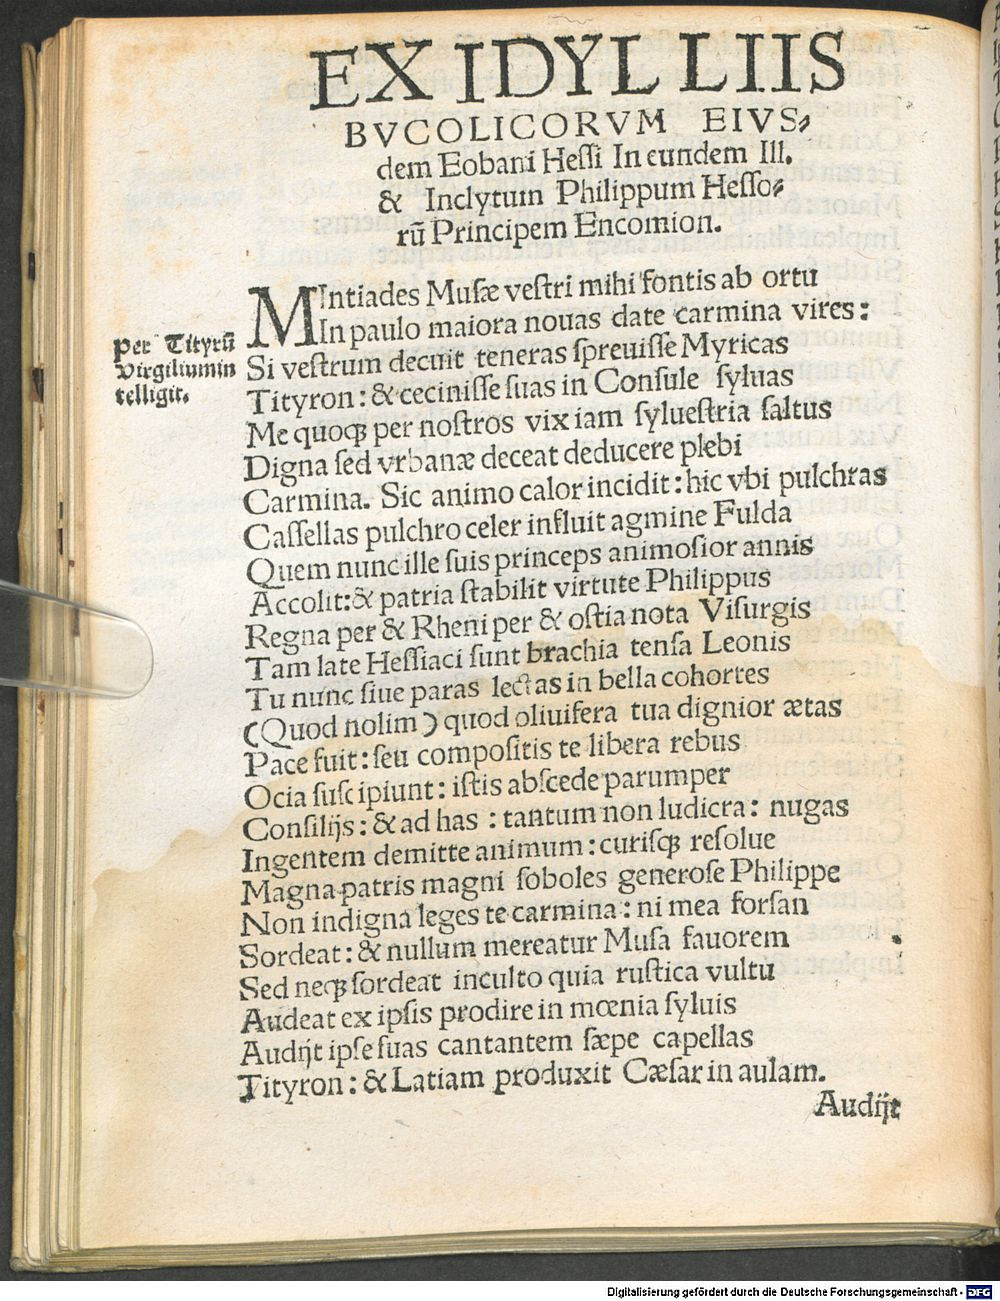 EX IDYLLIIS
BVCOLICORVM EIVS⸗
dem Eobani Heſſi In eundem Ill.
& Inclytum Philippum Heſſo⸗
rū Principem Encomion.
MIntiades Muſæ veſtri mihi fontis ab ortu
In paulo maiora nouas date carmina vires:
Per Tityrū
Virgilium in
telligit.
Si veſtrum decuit teneras ſpreuiſſe Myricas
Tityron: & ceciniſſe ſuas in Conſule ſyluas
Me quoqꝫ per noſtros vix iam ſylueſtria ſaltus
Digna ſed vrbanæ deceat deducere plebi
Carmina. Sic animo calor incidit: hic vbi pulchras
Caſſellas pulchro celer influit agmine Fulda
Quem nunc ille ſuis princeps animoſior annis
Accolit: & patria ſtabilit virtute Philippus
Regna per & Rheni per & oſtia nota Viſurgis
Tam late Heſſiaci ſunt brachia tenſa Leonis
Tu nunc ſiue paras lectas in bella cohortes
(Quod nolim) quod oliuifera tua dignior ætas
Pace fuit: ſeu compoſitis te libera rebus
Ocia ſuſcipiunt: iſtis abſcede parumper
Conſilijs: & ad has : tantum non ludicra: nugas
Ingentem demitte animum: curiſqꝫ reſolue
Magna patris magni ſoboles generoſe Philippe
Non indigna leges te carmina: ni mea forſan
Sordeat: & nullum mereatur Muſa fauorem
Sed neqꝫ ſordeat inculto quia ruſtica vultu
Audeat ex ipſis prodire in mœnia ſyluis
Audijt ipſe ſuas cantantem ſæpe capellas
Tityron: & Latiam produxit Cæſar in aulam.
Audijt
Digitalisierung gefördert durch die Deutsche Forschungsgemeinschaft - DFG